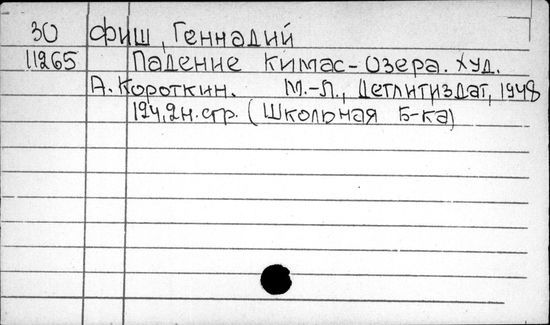 30 Фиш, Геннадий
11265 Падение Кимас-озера. Худ.
А. Короткин. М.-Л., Детлитиздат, 1948
124, 2 н. стр. (Школьная Б-ка)